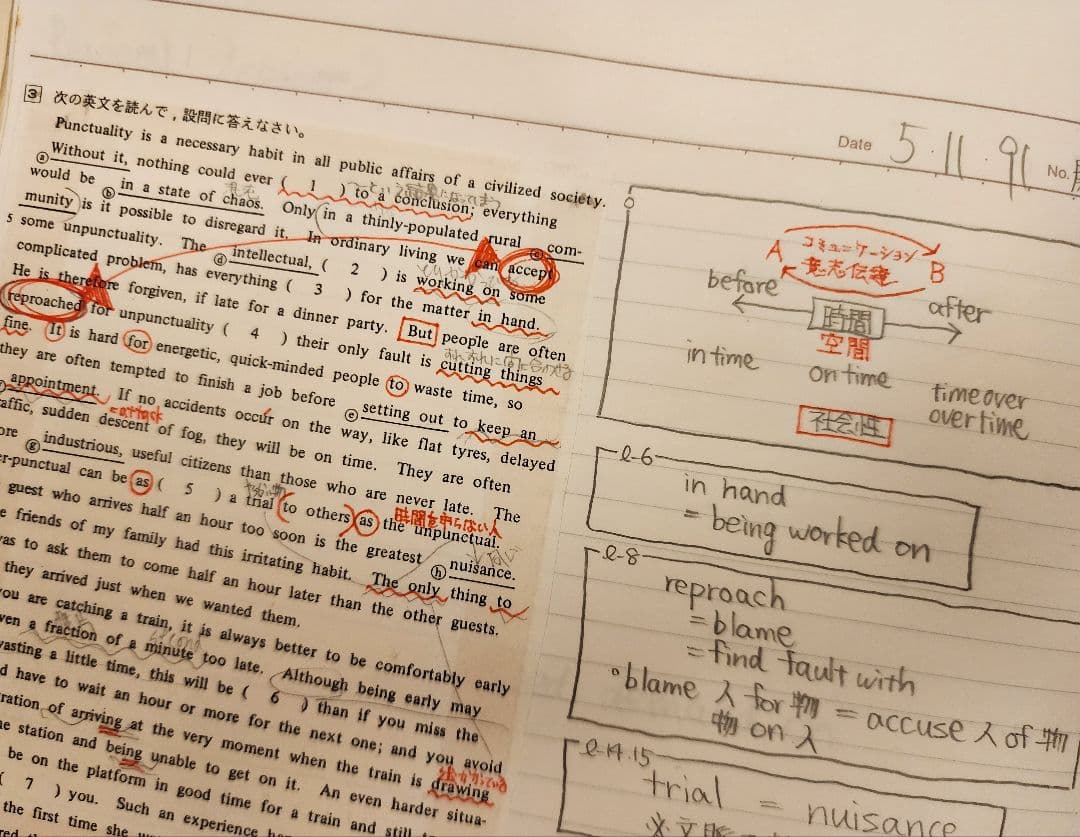 3 次の英文を読んで,設問に答えなさい。
Punctuality is a necessary habit in all public affairs of a civilized society.
ⓐWithout it, nothing could ever ( 1 ) to a conclusion; everything
would be ⓑin a state of chaos. Only in a thinly-populated rural ⓒcom-
munity is it possible to disregard it. In ordinary living we can accept
5 some unpunctuality. The ⓓintellectual, ( 2 ) is working on some
complicated problem, has everything ( 3 ) for the matter in hand.
He is therefore forgiven, if late for a dinner party. But people are often
reproached for unpunctuality ( 4 ) their only fault is cutting things
fine. It is hard for energetic, quick-minded people to waste time, so
they are often tempted to finish a job before ⓔsetting out to keep an
appointment. If no accidents occur on the way, like flat tyres, delayed
affic, sudden descent of fog, they will be on time. They are often
=attack
ore ⓖindustrious, useful citizens than those who are never late. The
er-punctual can be as ( 5 ) a trial to others as the unpunctual.
時間を守らない人
guest who arrives half an hour too soon is the greatest ⓗnuisance.
e friends of my family had this irritating habit. The only thing to
as to ask them to come half an hour later than the other guests.
they arrived just when we wanted them.
ou are catching a train, it is always better to be comfortably early
ven a fraction of a minute too late. Although being early may
second
asting a little time, this will be ( 6 ) than if you miss the
d have to wait an hour or more for the next one; and you avoid
ration of arriving at the very moment when the train is drawing
e station and being unable to get on it. An even harder situa-
be on the platform in good time for a train and still
( 7 ) you. Such an experience
the first time she
Date 5.11.91 No.
A コミュニケーション B
意志伝達
before 時間 after
空間
in time on time time over
over time
社会性
l-6
in hand
= being worked on
l-8
reproach
= blame
= find fault with
°blame 人 for 物 = accuse 人 of 物
物 on 人
l-14.15
trial = nuisance